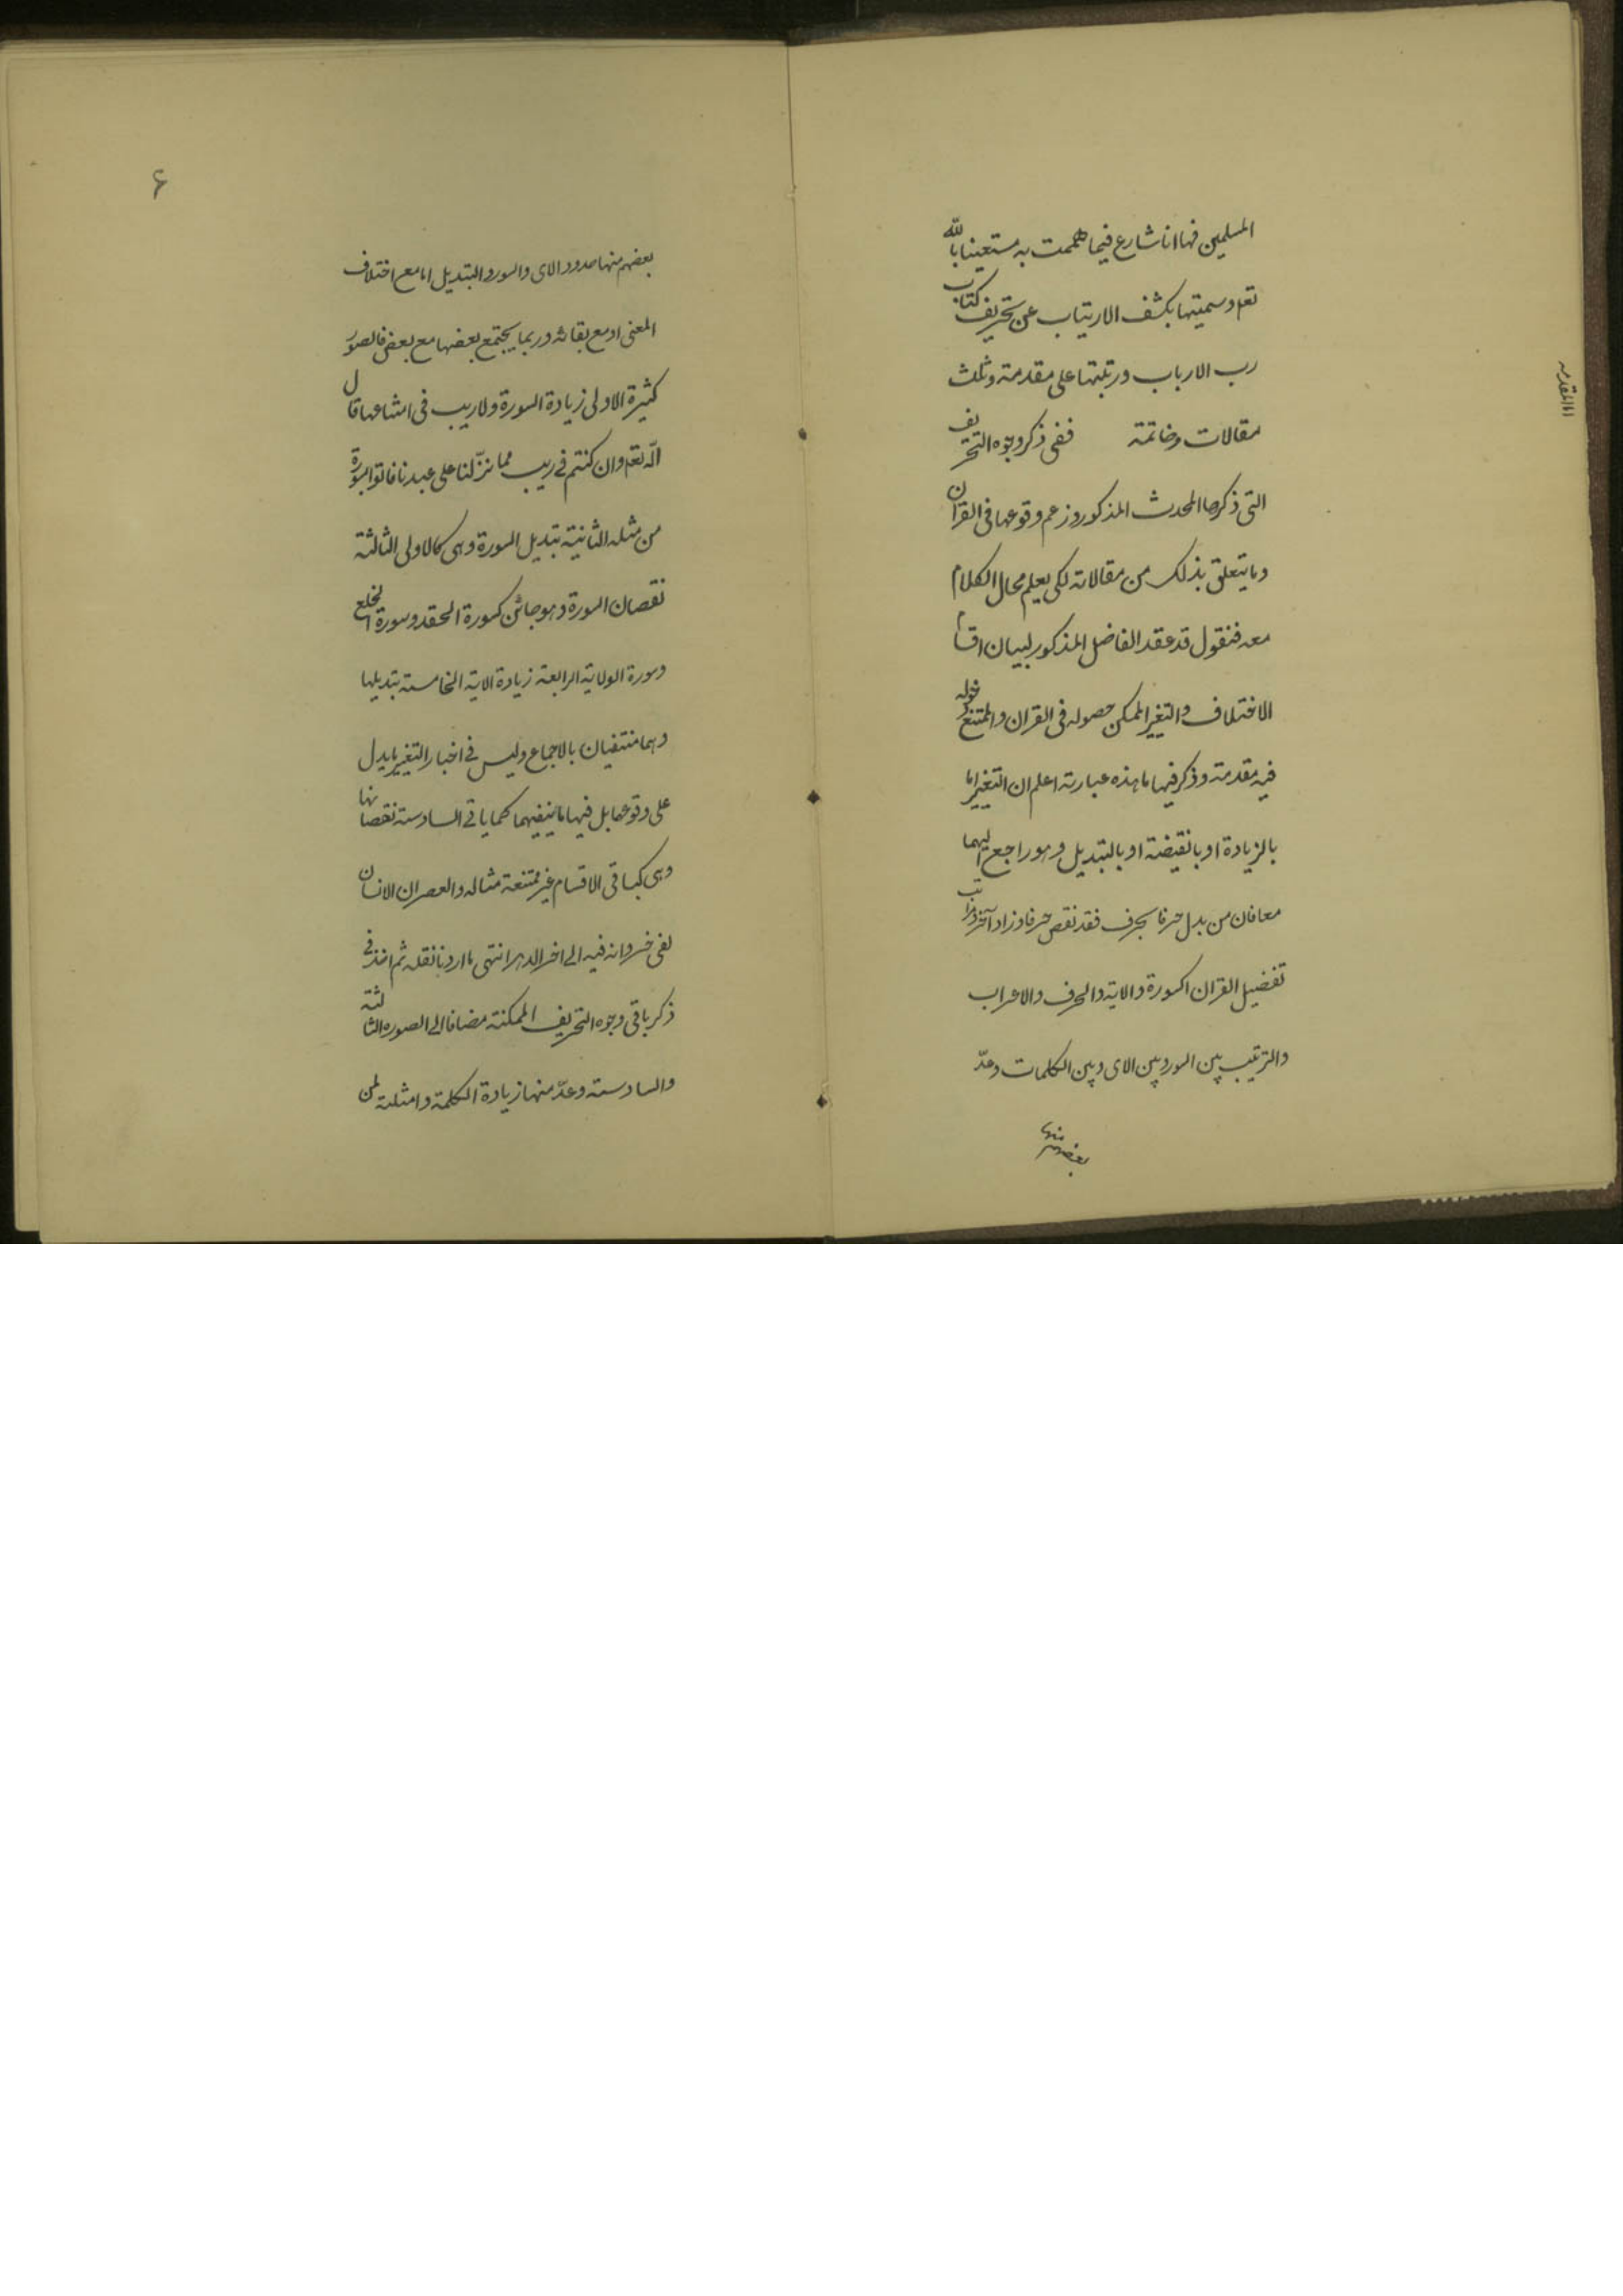 المسلمين فها انا شارع فيما هممت به مستعينا بالله
تعه وسميتها بكشف الارتياب عن تحريف كتاب
رب الارباب ورتبتها على مقدمة وثلث
مقالات وخاتمة ففى ذكر وجوه التحريف
التى ذكرها المحدث المذكور وزعم وقوعها فى القران
وما يتعلق بذلك من مقالاته لكى يعلم محال الكلام
معه فنقول قد عقد الفاضل المذكور لبيان اقسام
الاختلاف والتغير الممكن حصوله فى القران والممتنع دخوله
فيه مقدمة وذكر فيها ما هذه عبارته اعلم ان التغيير اما
بالزيادة او بالنقيصة او بالتبديل وهو راجع اليهما
معا فان من بدل حرفا بحرف فقد نقص حرفا وزاد آخر ومراتب
تفضيل القران السورة والاية والحرف والاعراب
والترتيب بين السور وبين الاى وبين الكلمات وعدّ
بعضهم منها
اما المقدمه
۶
بعضهم منها حدود الاى والسور والتبديل اما مع اختلاف
المعنى او مع بقائه وربما يجتمع بعضها مع بعض فالصور
كثيرة الاولى زيادة السورة ولا ريب فى امتناعها قال
الله تعه وان كنتم فى ريب مما نزّلنا على عبدنا فاتوا بسورة
من مثله الثانية تبديل السورة وهى كالاولى الثالثة
نقصان السورة وهو جائز كسورة الحقد وسورة الخلع
وسورة الولاية الرابعة زيادة الاية الخامسة تبديلها
وهما منتفيان بالاجماع وليس فى اخبار التغيير ما يدل
على وقوعهما بل فيها ما ينفيهما كما ياتى السادسة نقصانها
وهى كباقى الاقسام غير ممتنعة مثاله والعصر ان الانسان
لفى خسر وانه فيه الى اخر الدهر انتهى ما اردنا نقله ثم اخذ فى
ذكر باقى وجوه التحريف الممكنة مضافا الى الصورة الثالثة
والسادسة وعدّ منها زيادة الكلمة وامثلته لمن